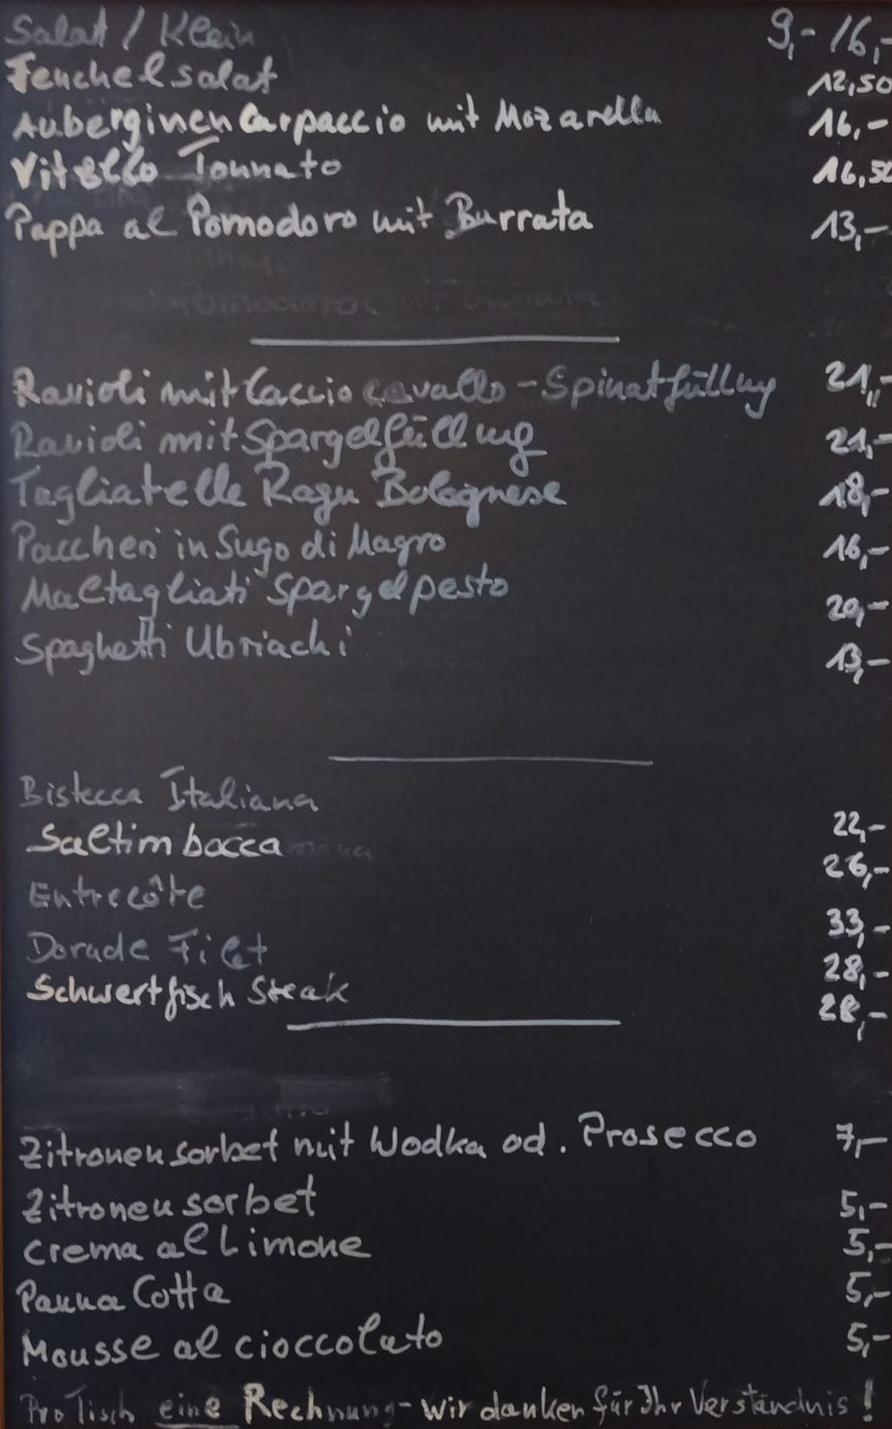 Salat / Klein 9,- 16,-
Fenchelsalat 12,50
Auberginen Carpaccio mit Mozarella 16,-
Vitello Tonnato 16,50
Pappa al Pomodoro mit Burrata 13,-
Ravioli mit Caccio cavallo - Spinatfüllung 21,-
Ravioli mit Spargelfüllung 21,-
Tagliatelle Ragu Bolognese 18,-
Paccheri in Sugo di Magro 16,-
Maltagliati Spargelpesto 20,-
Spaghetti Ubriachi 13,-
Bistecca Italiana 22,-
Saltimbocca 26,-
Entrecôte 33,-
Dorade Filet 28,-
Schwertfisch Steak 28,-
Zitronensorbet mit Wodka od. Prosecco 7,-
Zitronensorbet 5,-
Crema al Limone 5,-
Panna Cotta 5,-
Mousse al cioccolato 5,-
Pro Tisch eine Rechnung - wir danken für Ihr Verständnis!